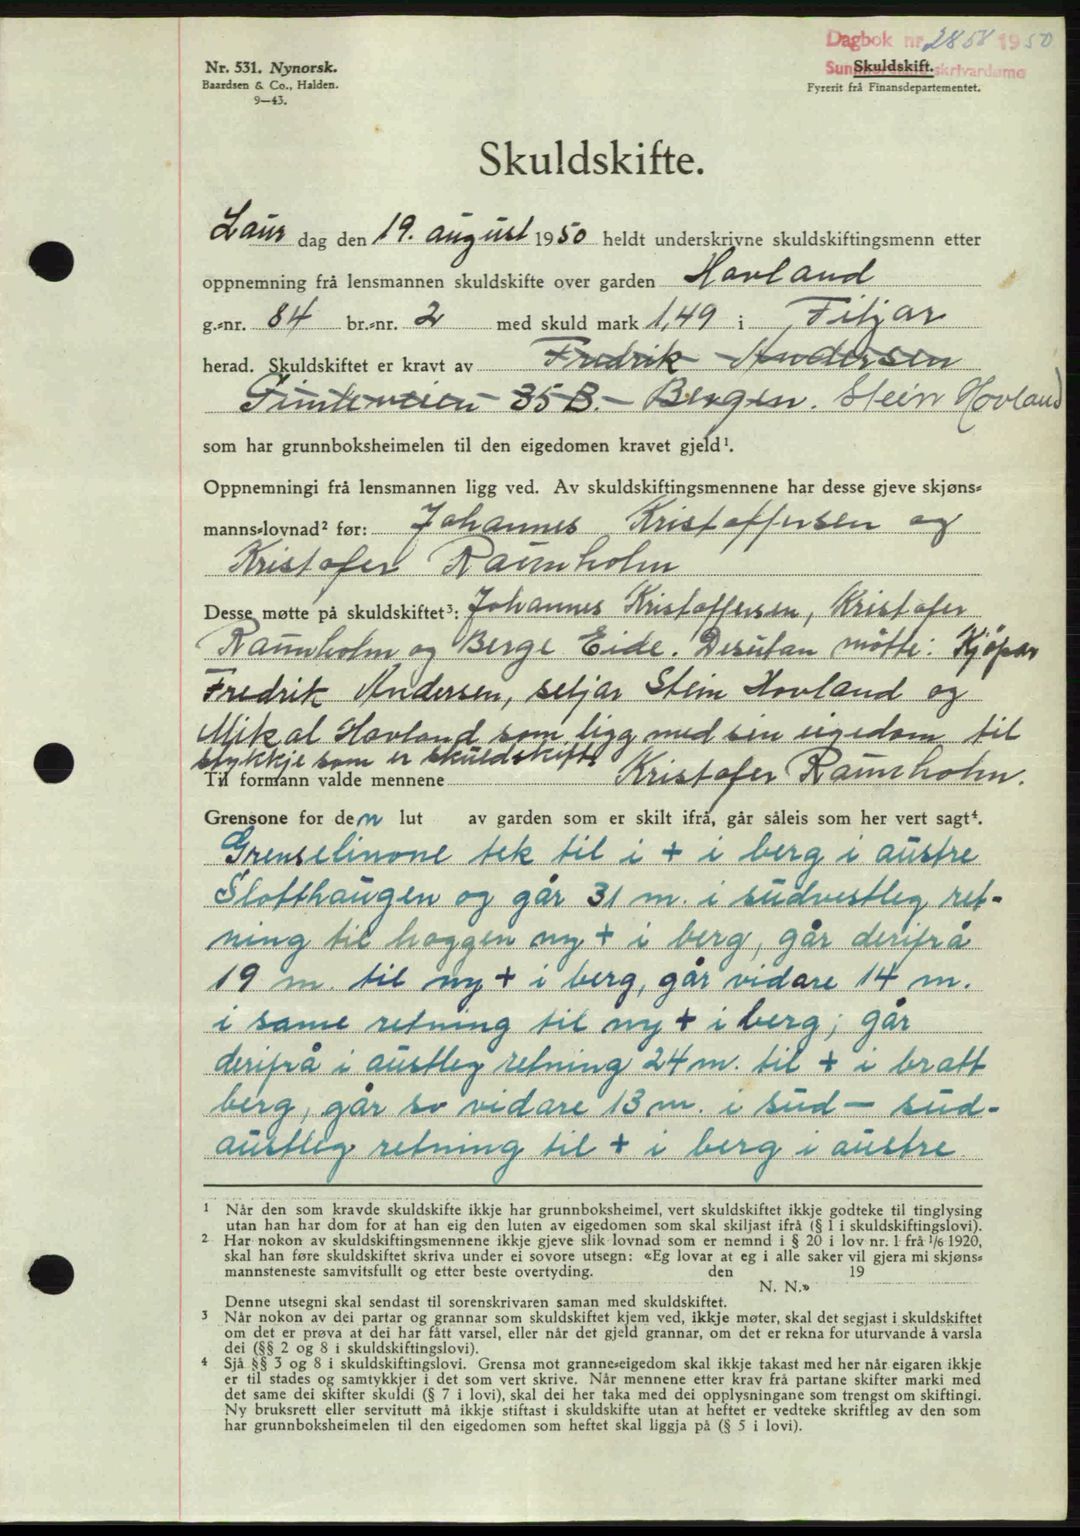 Dagbok nr. 2858 1950
Nr. 531. Nynorsk.
Baardsen & Co., Halden.
9—43.
Skuldskift.
Fyrerit frå Finansdepartementet.
Skuldskifte.
Laur dag den 19. august 1950 heldt underskrivne skuldskiftingsmenn etter
oppnemning frå lensmannen skuldskifte over garden Hovland
g.-nr. 84 br.-nr. 2 med skuld mark 1,49 i Fitjar
herad. Skuldskiftet er kravt av Fredrik Andersen
35 B. - Bergen. Stein Hovland
som har grunnboksheimelen til den eigedomen kravet gjeld¹.
Oppnemningi frå lensmannen ligg ved. Av skuldskiftingsmennene har desse gjeve skjøns-
manns-lovnad² før: Johannes Kristoffersen og
Kristofer Raunholm
Desse møtte på skuldskiftet³: Johannes Kristoffersen, Kristofer
Raunholm og Berge Eide. Desutan møtte: Kjöpar
Fredrik Andersen, seljar Stein Hovland og
Mikal Hovland som ligg med sin eigedom til
stykkje som er skuldskift.
Til formann valde mennene Kristofer Raunholm.
Grensone for den lut av garden som er skilt ifrå, går såleis som her vert sagt⁴.
Grenselinone tek til i + i berg i austre
Slotthaugen og går 31 m. i südvestleg ret-
ning til hoggen ny + i berg, går derifrå
19 m. til ny + i berg, går vidare 14 m.
i same retning til ny + i berg; går
derifrå i austleg retning 24 m. til + i bratt
berg, går so vidare 13 m. i sud - sud-
austleg retning til + i berg i austre
¹ Når den som kravde skuldskifte ikkje har grunnboksheimel, vert skuldskiftet ikkje godteke til tinglysing
utan han har dom for at han eig den luten av eigedomen som skal skiljast ifrå (§ 1 i skuldskiftingslovi).
² Har nokon av skuldskiftingsmennene ikkje gjeve slik lovnad som er nemnd i § 20 i lov nr. 1 frå 1/6 1920,
skal han føre skuldskiftet skriva under ei sovore utsegn: «Eg lovar at eg i alle saker vil gjera mi skjøns-
mannsteneste samvitsfullt og etter beste overtyding. den 19
N. N.»
Denne utsegni skal sendast til sorenskrivaren saman med skuldskiftet.
³ Når nokon av dei partar og grannar som skuldskiftet kjem ved, ikkje møter, skal det segjast i skuldskiftet
om det er prøva at dei har fått varsel, eller når det gjeld grannar, om det er rekna for uturvande å varsla
dei (§§ 2 og 8 i skuldskiftingslovi).
⁴ Sjå §§ 3 og 8 i skuldskiftingslovi. Grensa mot granne-eigedom skal ikkje takast med her når eigaren ikkje
er til stades og samtykkjer i det som vert skrive. Når mennene etter krav frå partane skifter marki med
det same dei skifter skuldi (§ 7 i lovi), skal dei her taka med dei opplysningane som trengst om skiftingi.
Ny bruksrett eller servitutt må ikkje stiftast i skuldskifte utan at heftet er vedteke skriftleg av den som
har grunnboksheimelen til den eigedomen som heftet skal liggja på (§ 5 i lovi).